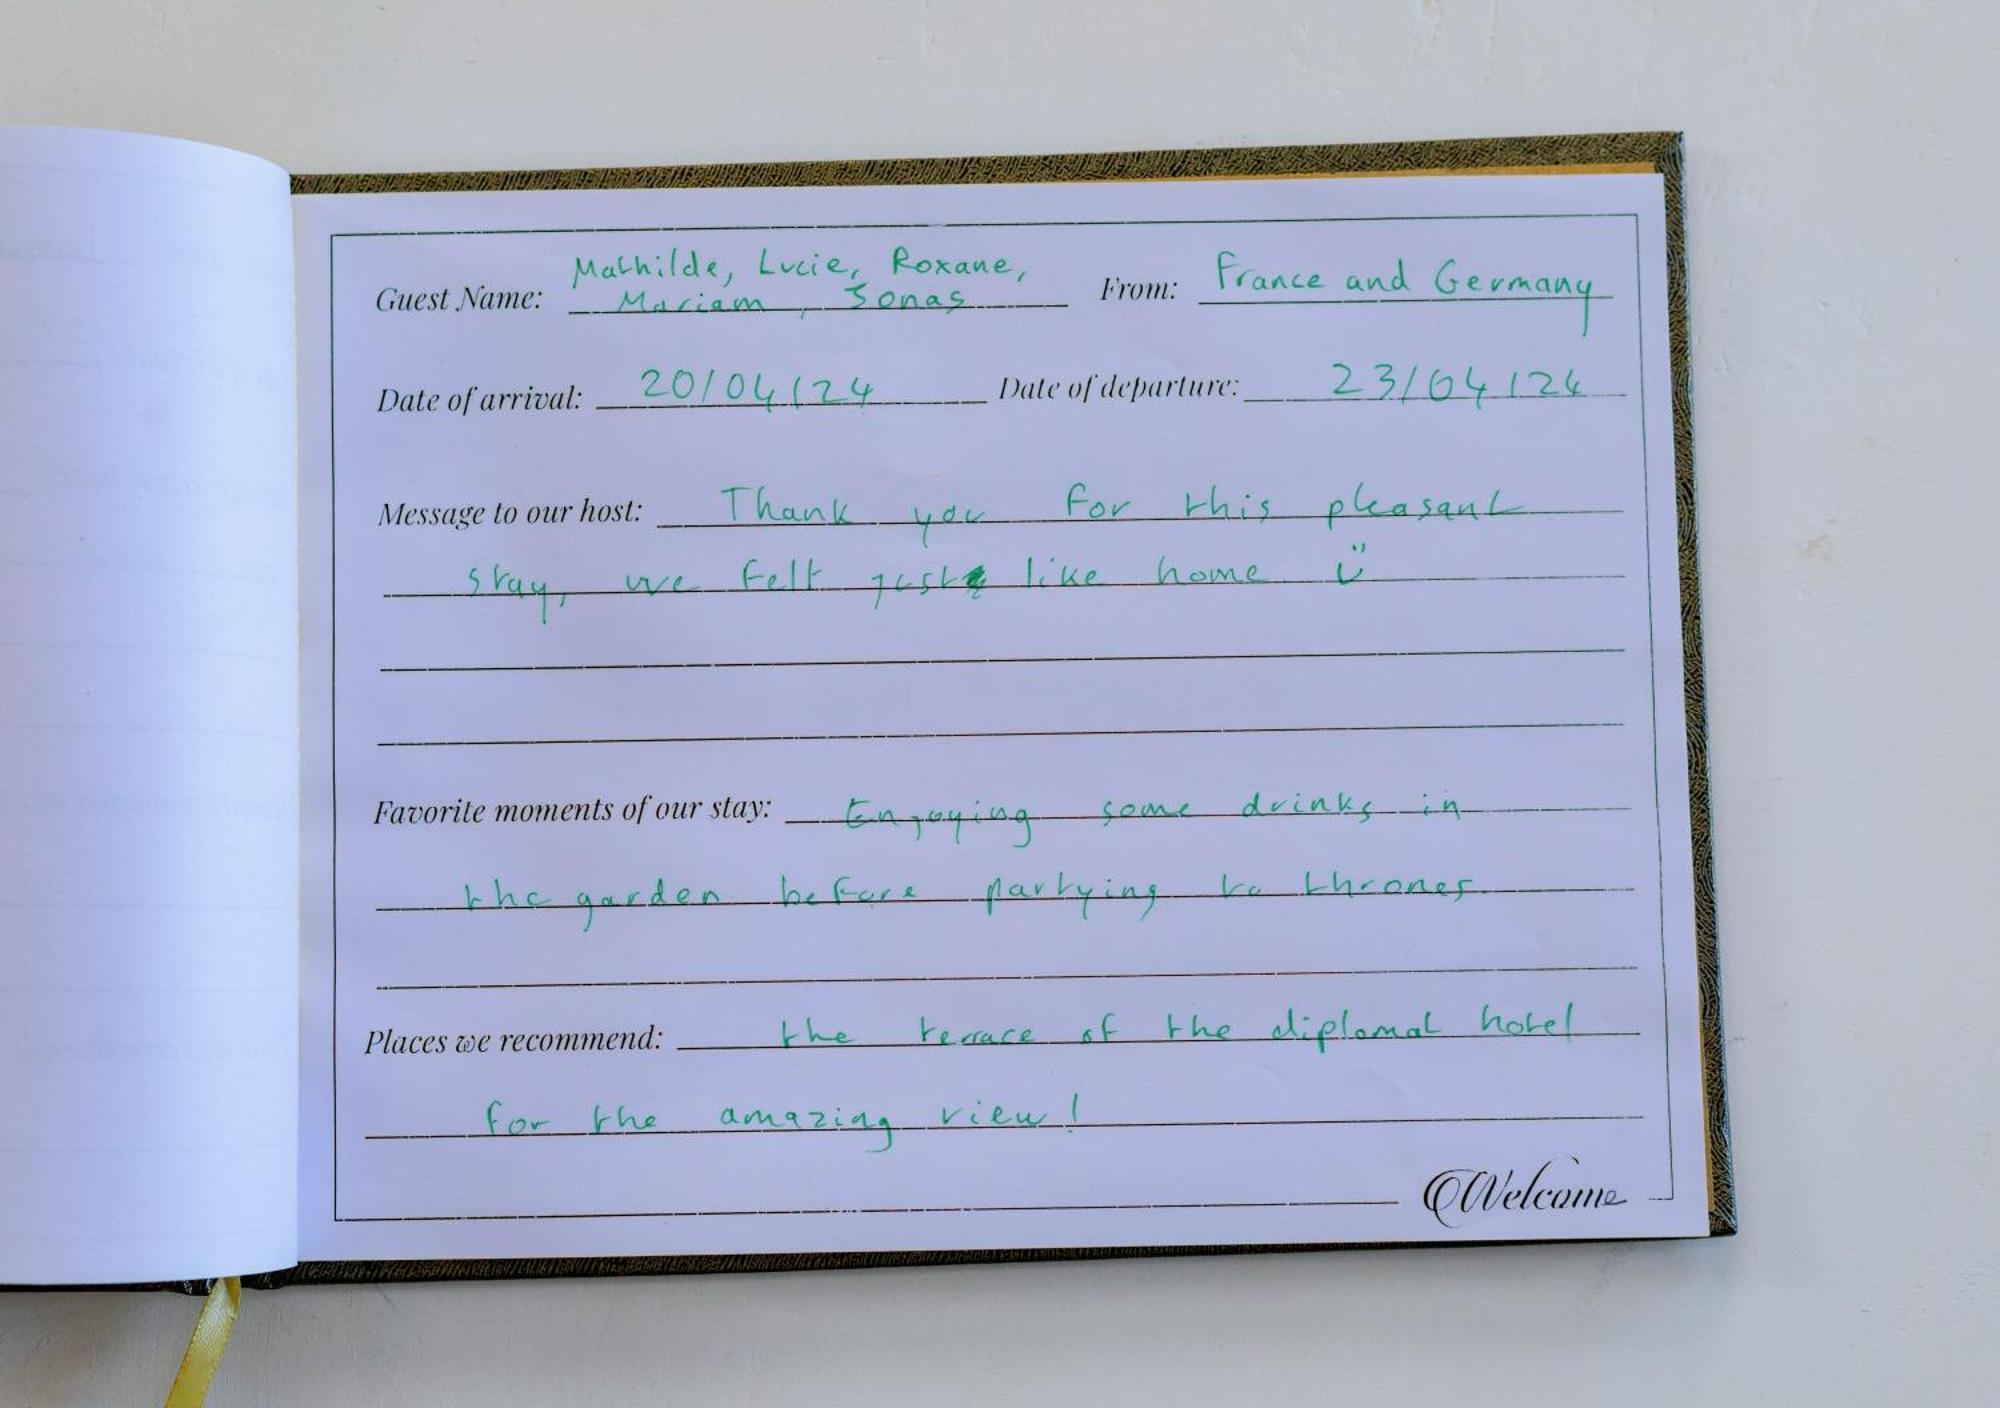 Mathilde, Lucie, Roxane,
Guest Name: Mariam, Jonas From: France and Germany
Date of arrival: 20/04/24 Date of departure: 23/04/24
Message to our host: Thank you for this pleasant
stay, we felt just like home
Favorite moments of our stay: Enjoying some drinks in
the garden before partying to thrones
Places we recommend: the terrace of the diplomat hotel
for the amazing view!
Welcome